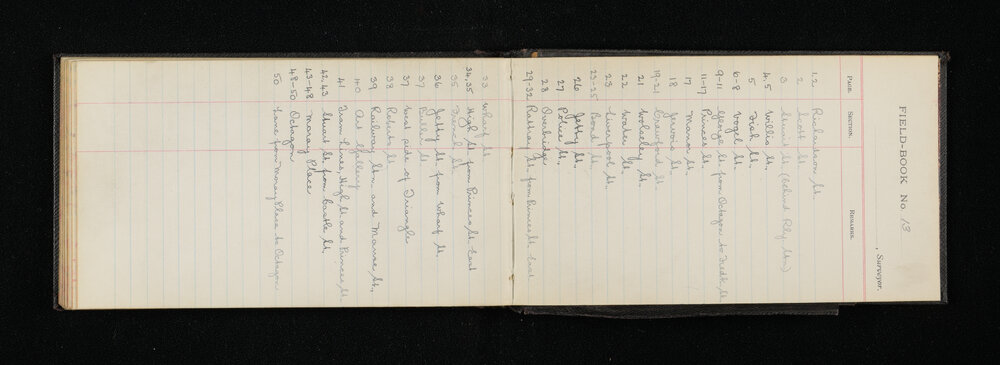 FIELD-BOOK No. 13
, Surveyor.
PAGE. SECTION. REMARKS.
1.2 Richardson St.
2 Leith St.
3 Stuart St. (behind Rly Stn)
4.5 Willis St.
5 Fish St.
6-8 Vogel St.
9-11 George St. from Octagon to Fredk St.
11-17 Princes St.
17 Manor St.
18 Jervois St.
19-21 Crawford St.
21 Wharf St.
22 Water St.
23 Liverpool St.
23-25 Bond St.
26 Jetty St.
27 Police St.
28 Overbridge
29-32 Rattray St. from Princes St. East
33 Wharf St.
34,35 High St. from Princes St. East
35 St.
36 Jetty St. from Wharf St.
37 St.
37 West side of Triangle
38 Roberts St.
39 Railway Stn. and Manse St.
40 Art Gallery
41 Tram Lines, High St. and Princes St.
42,43 Stuart St. from Castle St.
43-48 Moray Place
48-50 Octagon
50 Lane from Moray Place to Octagon